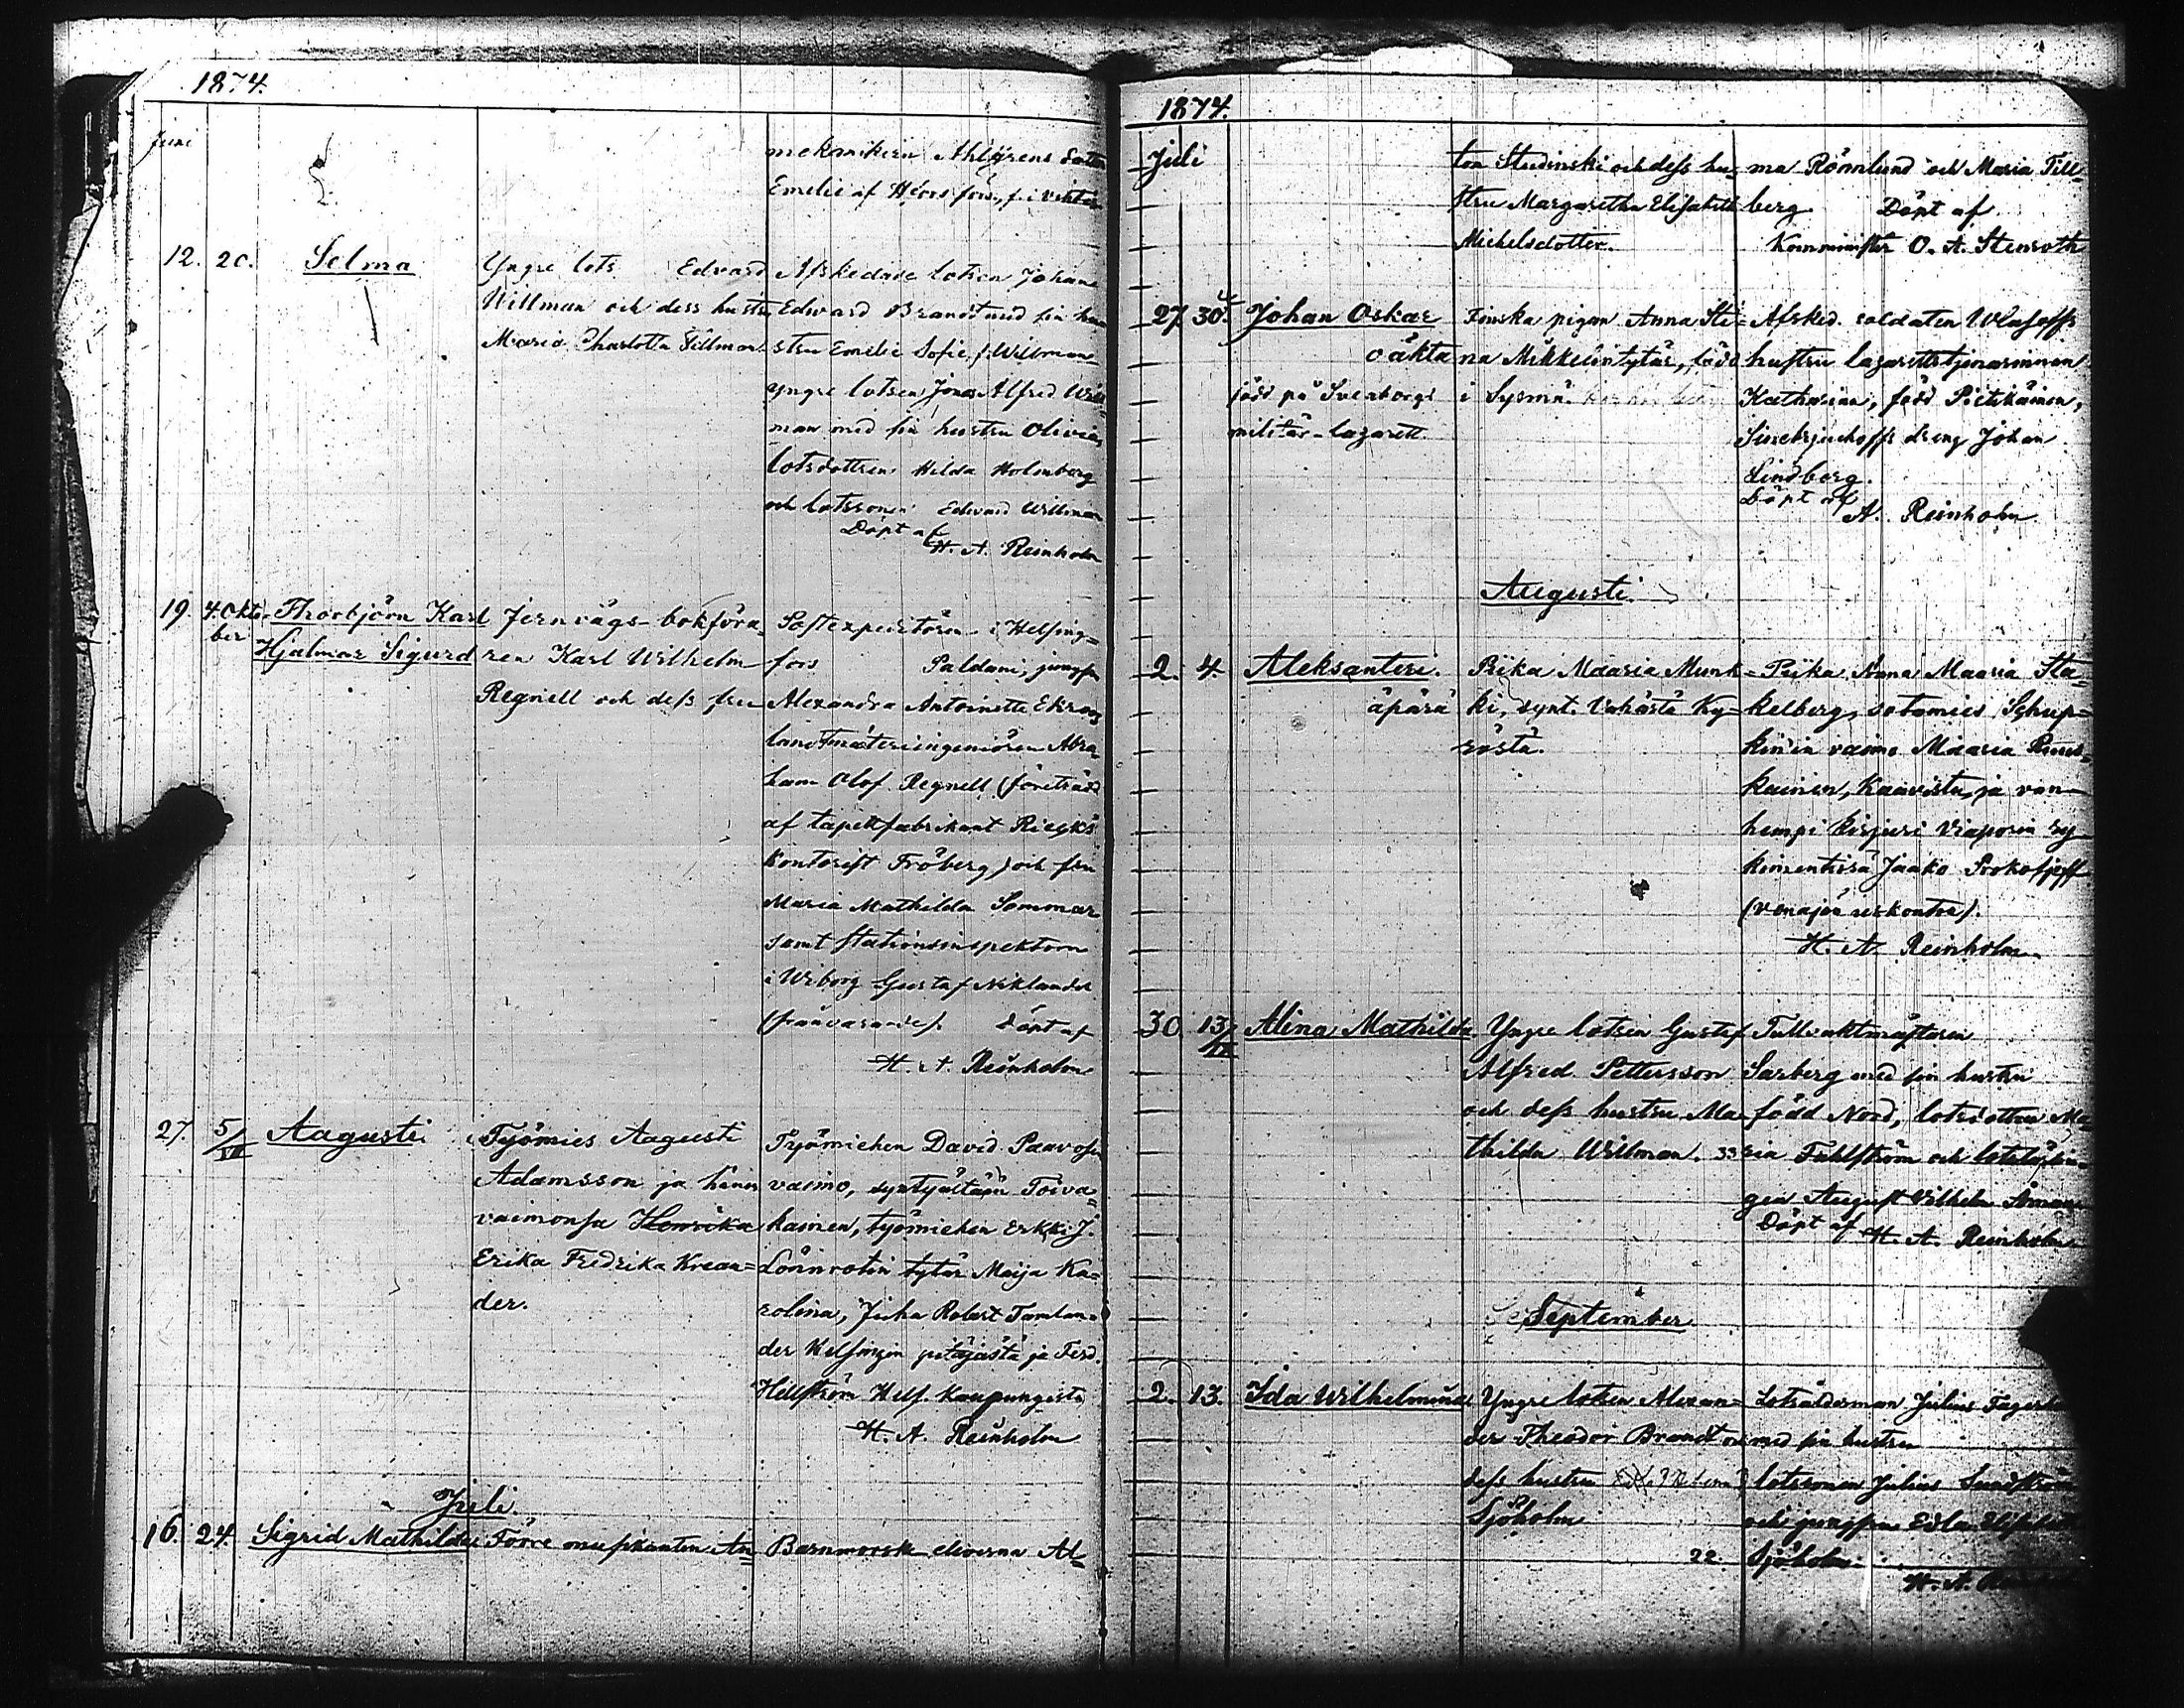 1874.
Juni
mekanikern Ahlgrens
Emelie af H:fors
12. 20. Selma
Yngre lots Edvard
Willman och dess hustru
Maria Charlotta Tillman
Afskedade lotsen Johan
Edward Brandt med sin hu
stru Emelie Sofie, f. Willman
yngre lotsen Jonas Alfred Will
man med sin hustru Olivia,
lotsdottren Hilda Holmberg
och lotssonen Edward Willman
Döpt af
H. A. Reinholm
19. 4. Okto
ber
Thorbjörn Karl
Hjalmar Sigurd
Jernvägs-bokföra-
ren Karl Wilhelm
Regnell och dess fru
Postexpeditören i Helsing=
fors Paldani, jungfru
Alexandra Antoinetta
landtmäteriingeniören Abra
ham Olof Regnell (företrädd
af tapetfabrikant Rieks
kontorist Fröberg) och fru
Maria Mathilda Sommar
samt stationsinspektorn
i Wiborg Gustaf Niklander
(frånvarande). Döpt af
H. A. Reinholm
27. 5/VII Aagusti
Työmies Aagusti
Adamsson ja hänen
vaimonsa Henrika
Erika Fredrika Krean=
der.
Työmiehen David Paavo
vaimo, syntyältään Toiva=
kainen, työmiehen Erkki J.
Lönnrotin tytär Maija Ka=
rolina, Juha Robert Tamlan=
der Helsingin pitäjästä ja Ferd.
Hellström Hels. kaupungista
H. A. Reinholm
Juli.
16. 24. Sigrid Mathilda
Förre musikanten An=
Barnmorsk eleverna Al=
1874.
Juli
ton Studinski och dess hu=
stru Margaretha Elisabeth
Michelsdotter.
ma Rönnlund och Maria Till=
berg. Döpt af
Kommminister O. A. Stenroth
27. 30. Johan Oskar
oäkta
född på Sveaborgs
militär-lazarett.
Finska pigan Anna Sti=
na Mikkelintytär, född
i Sysmä.
Afsked. soldaten Wlasoffs
hustru lazarettstjenarinnan
Katharina, född Pietikäinen,
dräng Johan
Lindberg.
Döpt af
A. Reinholm
Augusti.
2. 4. Aleksanteri.
äpärä
Piika Maaria Munk=
ki, synt. Vähästä Ky=
röstä.
Piika Anna Maaria Sta=
kelberg, sotamies
kin'in vaimo Maaria
kainen, Kaavista, ja van=
hempi kirjuri Viaporin ry=
kimentissä Jaako Prokofjeff
(venäjän uskontoa).
H. A. Reinholm.
30. 13/IX Alina Mathilda
Yngre lotsen Gustaf
Alfred Pettersson
och dess hustru Ma
thilda Willman. 33
Tullvaktmästaren
Sarberg med sin hustru
född Nord, lotsdottren Ma
ria Fahlström och lotslärlin=
gen August Vilhelm
Döpt af H. A. Reinholm
September
2. 13. Ida Wilhelmina
Yngre lotsen Alexan=
der Theodor Brandt o
dess hustru
Sjöholm
22
Lotsålderman Julius
med sin hustru
lotssonen Julius Sundström
och jungfrun Edla Elisabeth
Sjöholm.
H. A.